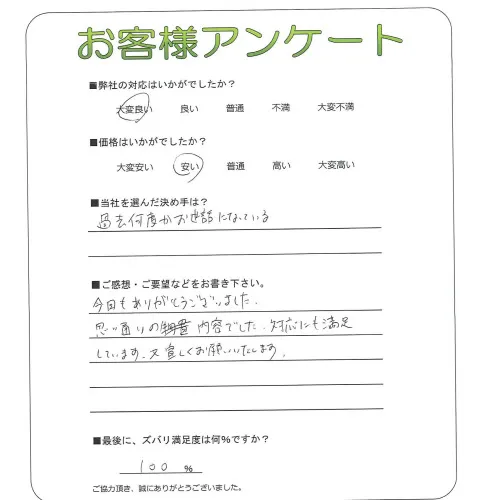 お客様アンケート
■弊社の対応はいかがでしたか？
大変良い 良い 普通 不満 大変不満
■価格はいかがでしたか？
大変安い 安い 普通 高い 大変高い
■当社を選んだ決め手は？
過去何度かお世話になっている
■ご感想・ご要望などをお書き下さい。
今回もありがとうございました。
思い通りの 内容でした。対応にも満足
しています。又宜しくお願いいたします。
■最後に、ズバリ満足度は何%ですか？
100 %
ご協力頂き、誠にありがとうございました。